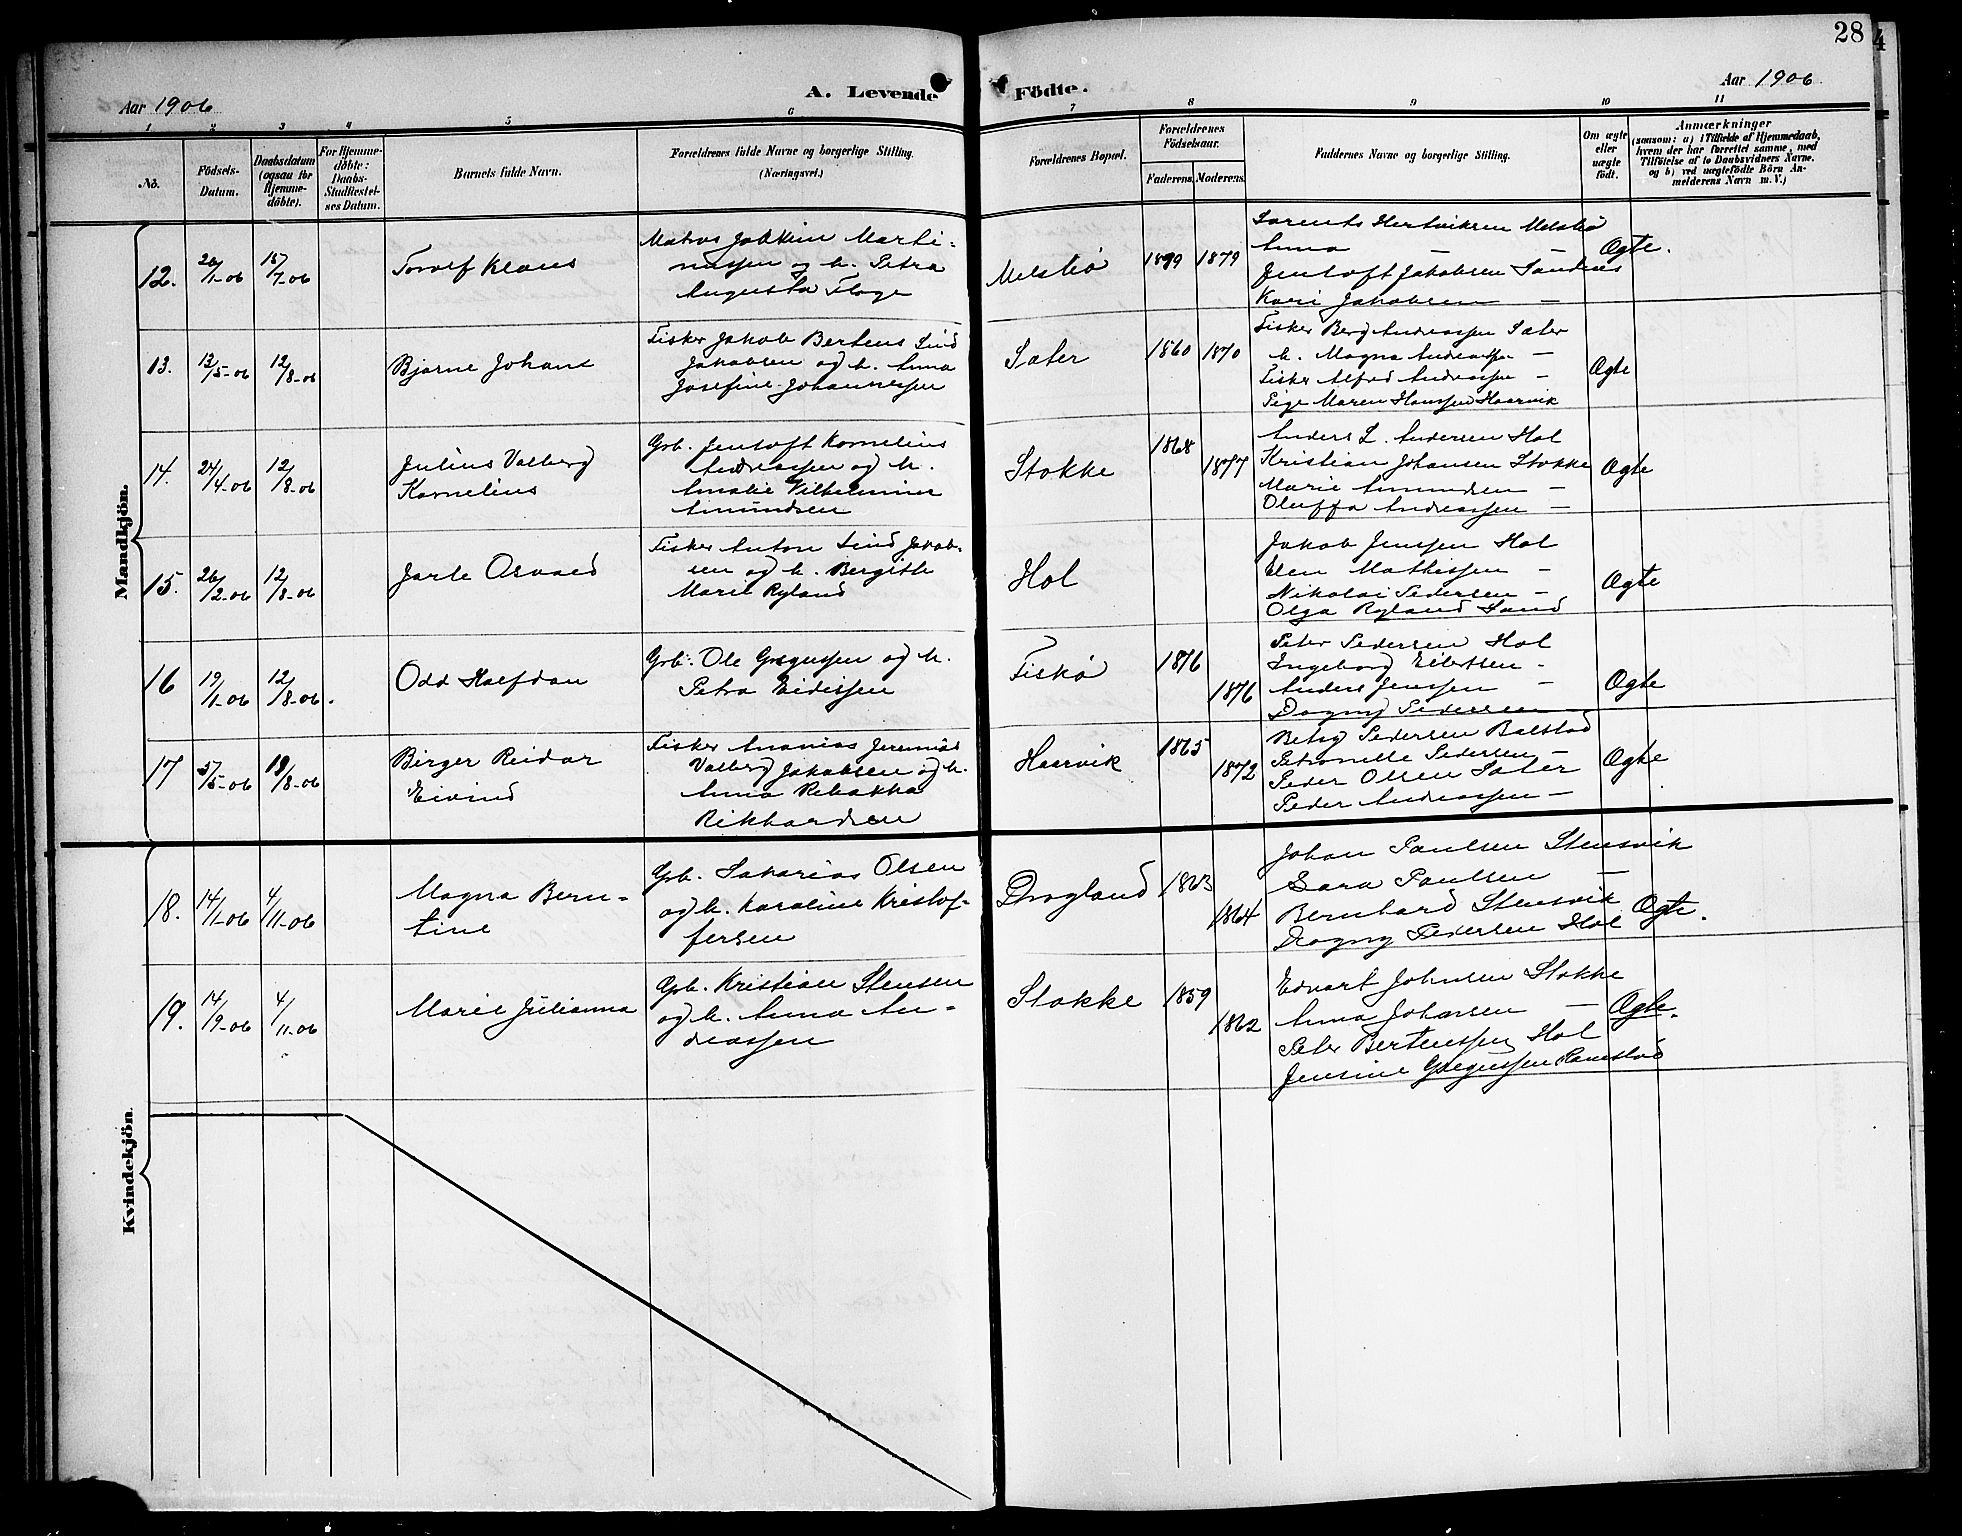 28
4
Aar 1906
A. Levende Födte.
Aar 1906
1 2 3 4 5 6 7 8 9 10 11
No.
Födsels-Datum.
Daabsdatum (ogsaa for Hjemme-döbte).
For Hjemme-döbte: Daabs-Stadfæstel-ses Datum.
Barnets fulde Navn.
Forældrenes fulde Navne og borgerlige Stilling. (Næringsvei.)
Forældrenes Bopæl.
Forældrenes Födselsaar.
Faderens. Moderens.
Faddernes Navne og borgerlige Stilling.
Om ægte eller uægte födt.
Anmærkninger
(saasom: a) i Tilfælde af Hjemmedaab,
hvem der har forrettet samme, med
Tilföielse af to Daabsvidners Navne.
og b) ved uægtefödte Börn An-
melderens Navn m. V.)
Mandkjön.
12. 26/1-06 15/7-06 Torolf Klaus
Matros Joakim Marti-
nussen og h. Petra
Augusta Floge
1879
Lorents Hertviksen
Anna — —
Jentoft Jakobsen Sandnes
Kari Jakobsen —
Ægte.
13. 13/5-06 12/8-06 Bjarne Johan
Fisker Jakob Berteus Lind
Jakobsen og h. Anna
Josefine Johannessen
Sæter 1860 1870
Fisker Berg Andreassen Sæter
h. Magna Andreassen —
Fisker Alfred Andreassen —
Pige Maren Hanssen Haarvik
Ægte
14. 24/4-06 12/8-06 Julius Valberg
Kornelius
Grb. Jentoft Kornelius
Andreassen og h.
Amalie Vilhelmine
Amundsen
Stokke 1868 1877
Anders L. Andersen Hol
Kristian Johansen Stokke
Marie Amundsen —
Oluffa Andreassen —
Ægte
15. 26/2-06 12/8-06 Jarle Osvald
Fisker Anton Lind Jakob-
sen og h. Bergithe
Marie Ryland
Hol
Jakob Jenssen Hol
Elen Mathissen —
Nikolai Pedersen —
Olga Ryland Sund
Ægte
16 19/1-06 12/8-06. Odd Halfdan
Grb. Ole Gregussen og h.
Petra Eidissen
Fiskø 1876 1876
Peter Pedersen Hol
Ingeborg —
Anders Jenssen —
Dagny Pedersen —
Ægte
17 5/5-06 19/8-06 Birger Reidar
Eivind
Fisker Ananias Jeremias
Valberg Jakobsen og h.
Anna Rebekka
Rikhardsen
Haarvik 1865 1872
Betsy Pedersen Balstad
Petronelle Pedersen —
Peder Olsen Sæter
Peder Andreassen —
Ægte
Kvindekjön.
18. 14/1-06 4/11-06 Magna Bern-
tine
Grb. Sakarias Olsen
og h. Karoline Kristof-
fersen
Drogland 1863 1864
Johan Paulsen Stensvik
Sara Paulsen —
Bernhard Stensvik
Dagny Pedersen Hol
Ægte.
19. 14/9-06 4/11-06 Marie Julianna
Grb. Kristian Stensen
og h. Anna An-
dreassen
Stokke 1859 1862
Edvart Johnsen Stokke
Anna Johansen —
Peter Berteussen Hol
Jensine Gregussen Ramsvik
Ægte.